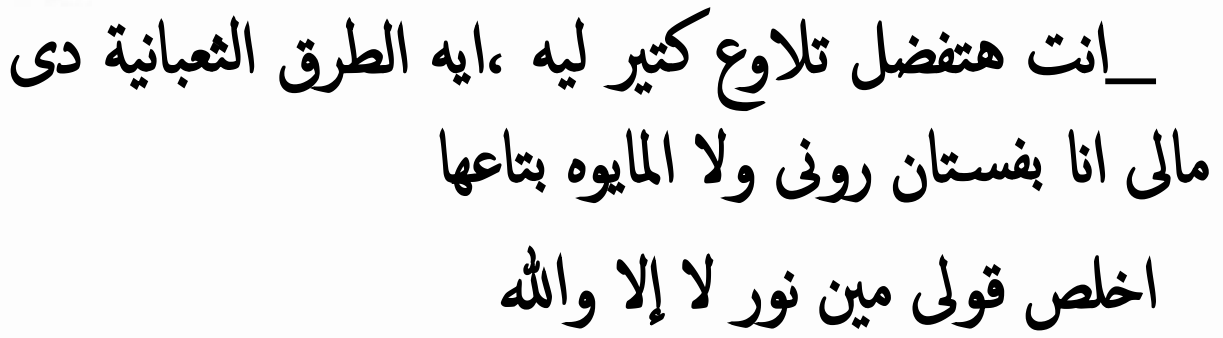 _انت هتفضل تلاوع كتير ليه ،ايه الطرق الثعبانية دى
مالى انا بفستان رونى ولا المايوه بتاعها
اخلص قولى مين نور لا إلا والله